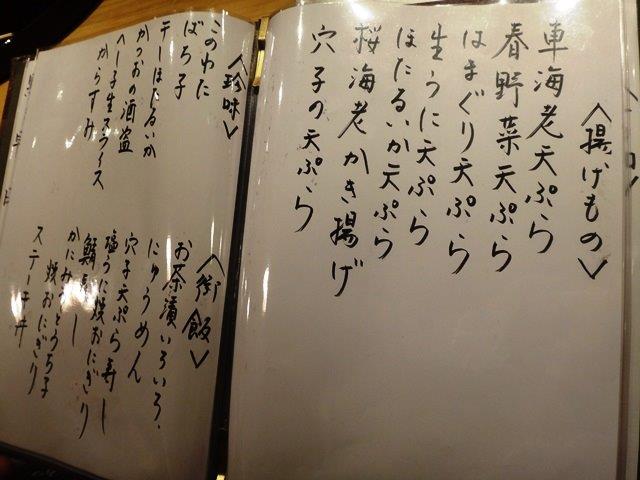 〈揚げもの〉
車海老天ぷら
春野菜天ぷら
はまぐり天ぷら
生うに天ぷら
ほたるいか天ぷら
桜海老かき揚げ
穴子の天ぷら
〈珍味〉
このわた
ばち子
干しほたるいか
かつおの酒盗
へしこ生スライス
からすみ
〈御飯〉
お茶漬いろいろ
にゅうめん
穴子天ぷら寿し
塩うに焼おにぎり
焼おにぎり
ステーキ丼